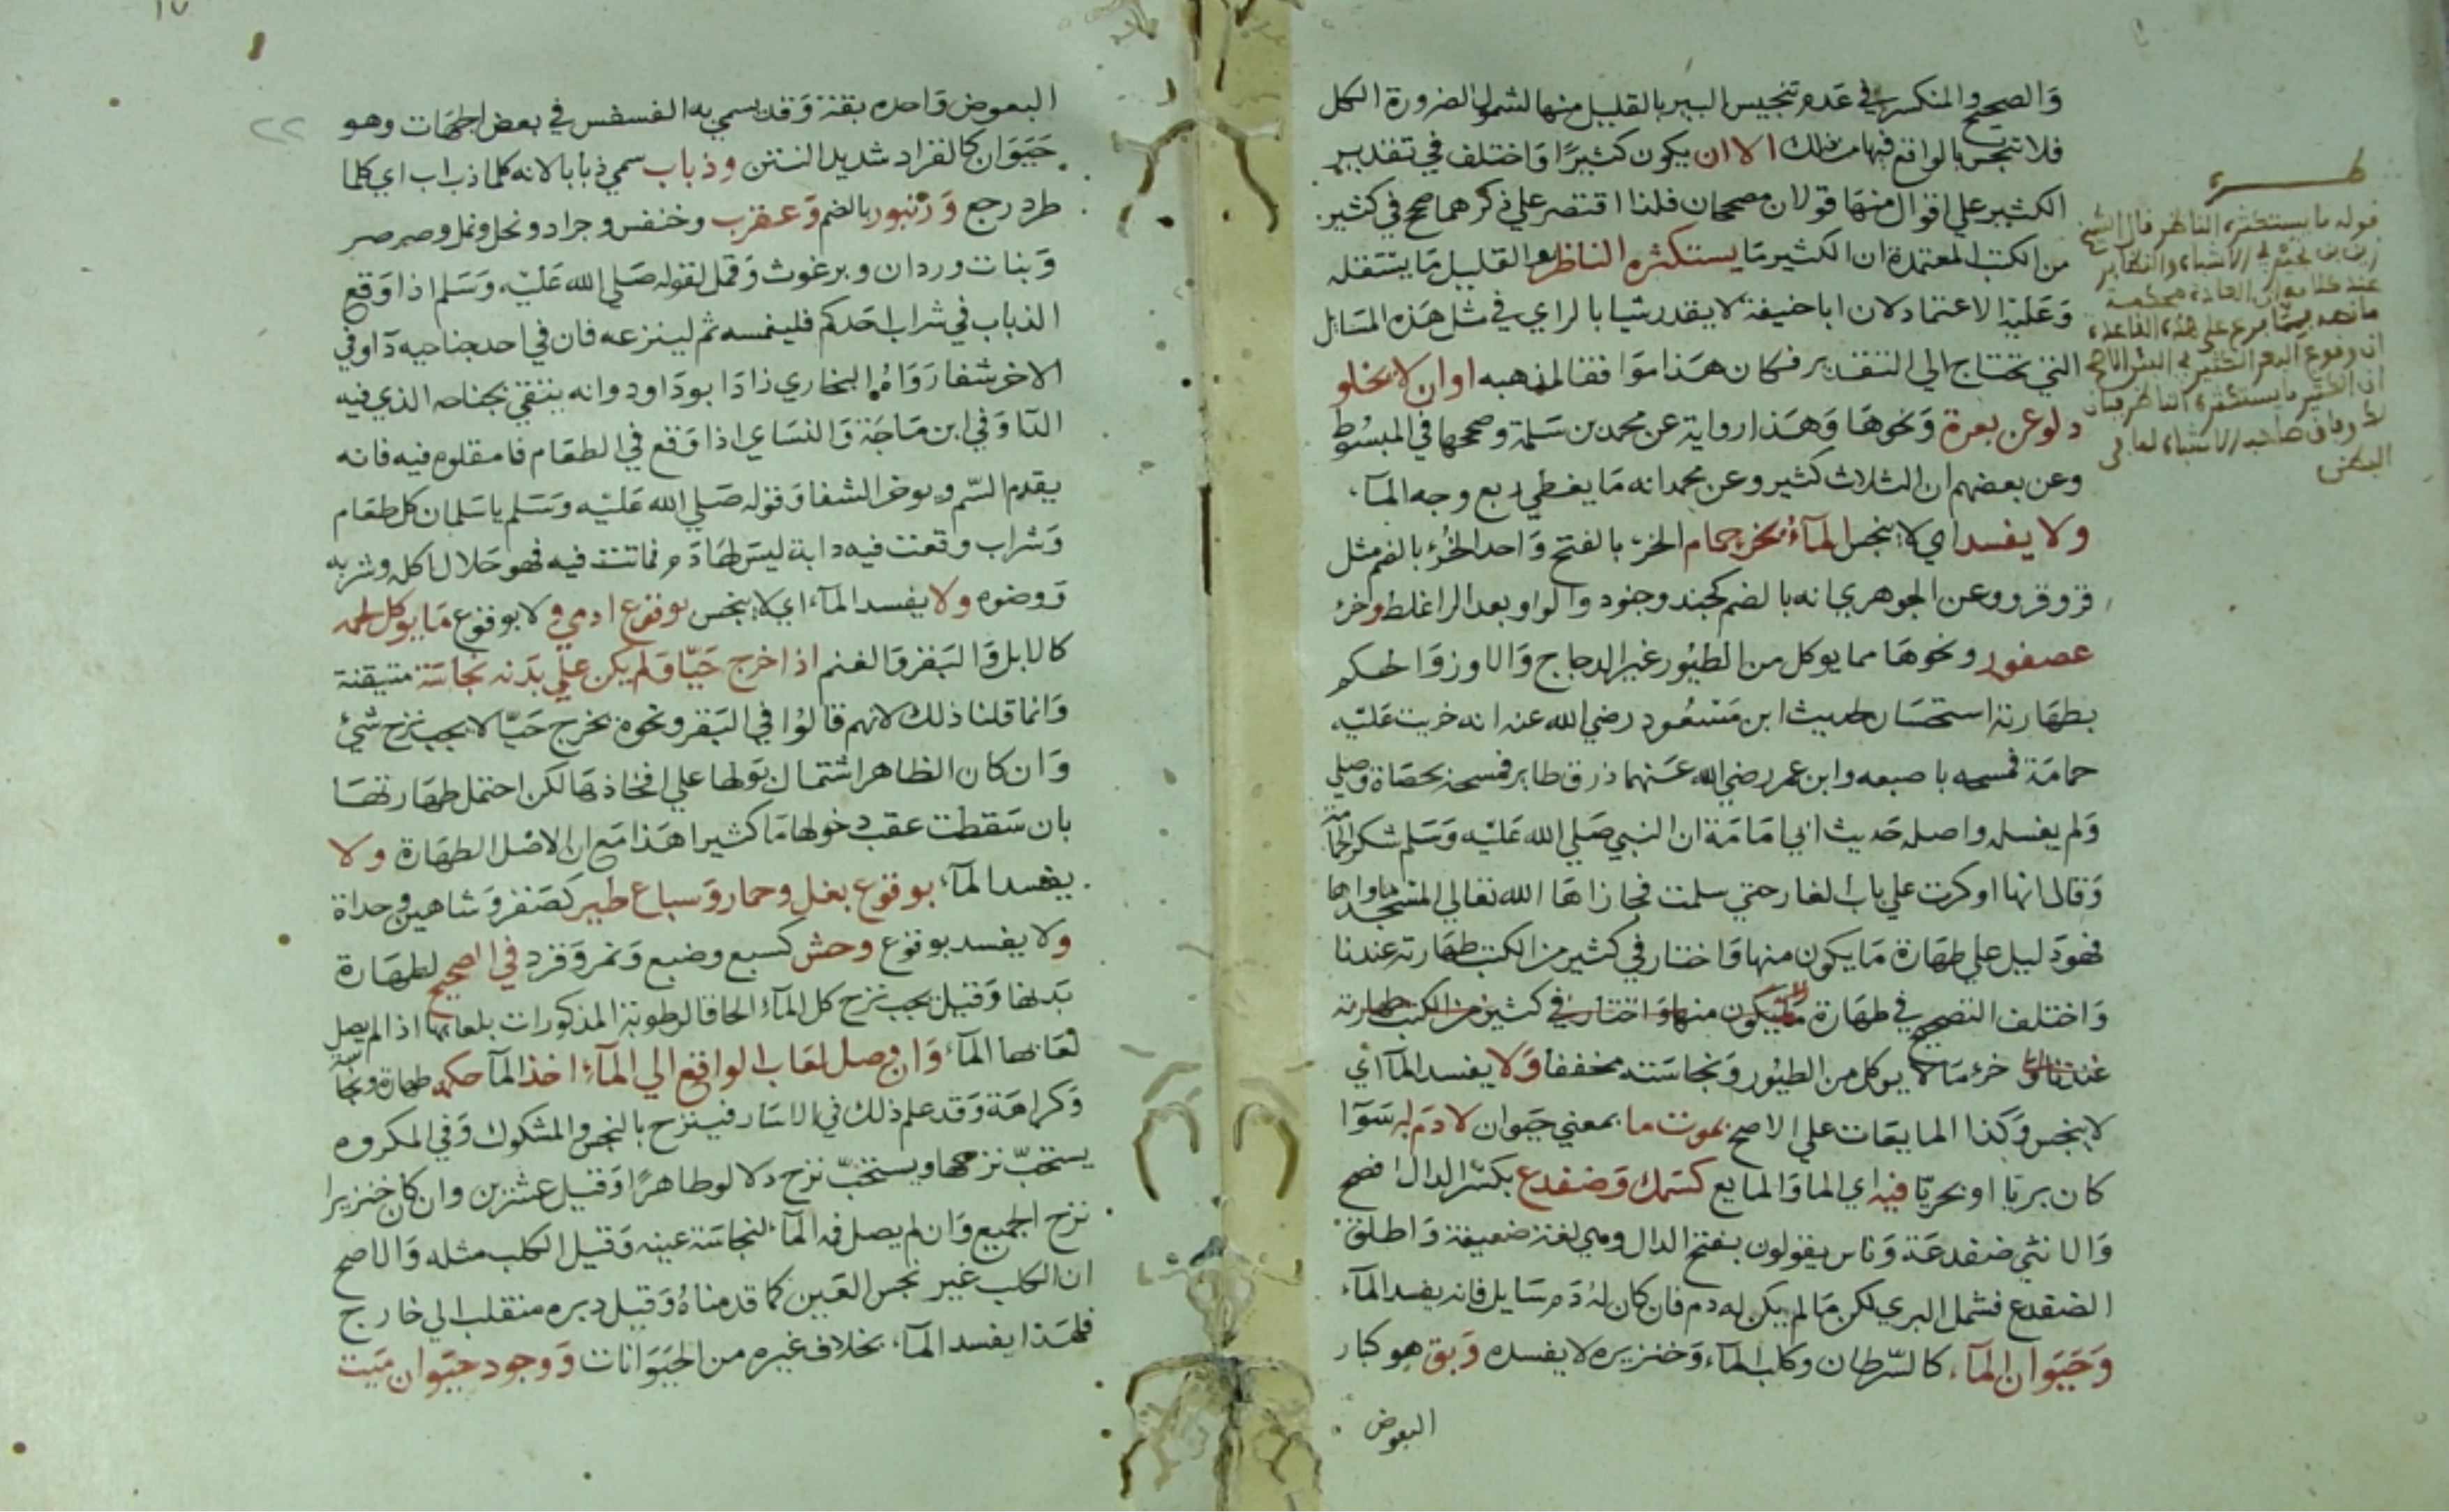 والصحيح والمنكسر في عدم تنجيس البير بالقليل منها لشمول الضرورة الكل
فلا تنجس بالواقع فيها من ذلك الا ان يكون كثيرًا واختلف في تقدير
الكثير علي اقوال منها قولان مصححان فلذا اقتصر علي ذكرهما صحح في كثير
من الكتب المعتمدة ان الكثير ما يستكثره الناظر والقليل ما يستقله
وعليه الاعتماد لان ابا حنيفة لا يقدر شيا بالراي في مثل هذه المسائل
التي تحتاج الي التقدير فكان هذا موافقا لمذهبه او ان لا يخلو
دلو عن بعرة ونحوها وهذا رواية عن محمد بن سلمة وصححها في المبسوط
وعن بعضهم ان الثلاث كثير وعن محمد انه ما يغطي ربع وجه المآء
ولا يفسد اي لا ينجس المآء بخرء حمام الخرء بالفتح واحد الخرء بالضم مثل
قرء وقروء وعن الجوهري انه بالضم كجند وجنود والواو بعد الرا غلط وخرء
عصفور ونحوها مما يوكل من الطيور غير الدجاج والاوز والحكم
بطهارته استحسان لحديث ابن مسعود رضي الله عنه انه خريت عليه
حمامة فمسحه باصبعه وابن عمر رضي الله عنهما ذرق طاير فمسحه بحصاة وصلي
ولم يغسله واصله حديث ابي امامة ان النبي صلي الله عليه وسلم شكر الحمامة
وقال انها اوكرت علي باب الغار حتي سلمت فجازاها الله تعالي المسجد ماواها
فهو دليل علي طهارة ما يكون منها واختار في كثير من الكتب طهارته عندنا
واختلف التصحيح في طهارة ما يكون منها واختار في كثير من الكتب طهارته
عندنا خرء ما لا يوكل من الطيور ونجاسته مخففا ولا يفسد المآ اي
لا ينجس وكذا المايعات علي الاصح بموت ما بمعني حيوان لا دم له سوآ
كان بريّا او بحريّا فيه اي الما والمايع كسمك وضفدع بكسر الدال افصح
والانثي ضفدعة وناس يقولون بفتح الدال وهي لغة ضعيفة واطلق
الضفدع فشمل البري لكن ما لم يكن له دم فان كان له دم سايل فانه يفسد المآء
وحيوان المآء كالسّرطان وكلب المآء وخنزيره لا يفسده وبق هو كبار
البعوض
قوله ما يستكثره الناظر قال الشيخ
زين بن نجيم في الاشباه والنظاير
البعوض واحده بقة وقد يسمي به الفسفس في بعض الجهات وهو
حيوان كالقراد شديد النتن وذباب سمي ذبابا لانه كلما ذب اب اي كلما
طرد رجع وزنبور بالضم وعقرب وخنفس وجراد ونحل ونمل وصرصر
وبنات وردان وبرغوث وقمل لقوله صلي الله عليه وسلم اذا وقع
الذباب في شراب احدكم فليغمسه ثم لينزعه فان في احد جناحيه دآ وفي
الاخر شفا رواه البخاري زاد ابو داود وانه يتقي بجناحه الذي فيه
الدآ وفي ابن ماجة والنساي اذا وقع في الطعام فامقلوه فيه فانه
يقدم السّم ويوخر الشفا وقوله صلي الله عليه وسلم يا سلمان كل طعام
وشراب وقعت فيه دابة ليس لها دم فماتت فيه فهو حلال اكله وشربه
ووضوه ولا يفسد المآء اي لا ينجس بوقوع ادمي ولا بوقوع ما يوكل لحمه
كالابل والبقر والغنم اذا خرج حيّا ولم يكن علي بدنه نجاسة متيقنة
وانما قلنا ذلك لانهم قالوا في البقر ونحوه يخرج حيّا لا يجب نزح شيء
وان كان الظاهر اشتمال بولها علي افخاذها لكن احتمل طهارتها
بان سقطت عقب دخولها ما كثيرا هذا مع ان الاصل الطهارة ولا
يفسد المآء بوقوع بغل وحمار وسباع طير كصقر وشاهين وحداة
ولا يفسد بوقوع وحش كسبع وضبع ونمر وقرد في الصحيح لطهارة
بدنها وقيل يجب نزح كل المآء الحاقا لرطوبة المذكورات بلعابها اذا لم يصل
لعابها المآء وان وصل لعاب الواقع الي المآء اخذ المآ حكمه طهارة ونجاسة
وكراهة وقد علم ذلك في الاسار فينزح بالنجس والمشكوك وفي المكروه
يستحبّ نزحها ويستحبّ نزح دلاء لو طاهرًا وقيل عشرين وان كان خنزيرا
نزح الجميع وان لم يصل فمه المآء لنجاسة عينه وقيل الكلب مثله والاصح
ان الكلب غير نجس العين كما قدمناهُ وقيل دبره منقلب الي خارج
فلهذا يفسد المآء بخلاف غيره من الحيوانات ووجود حيوان ميت